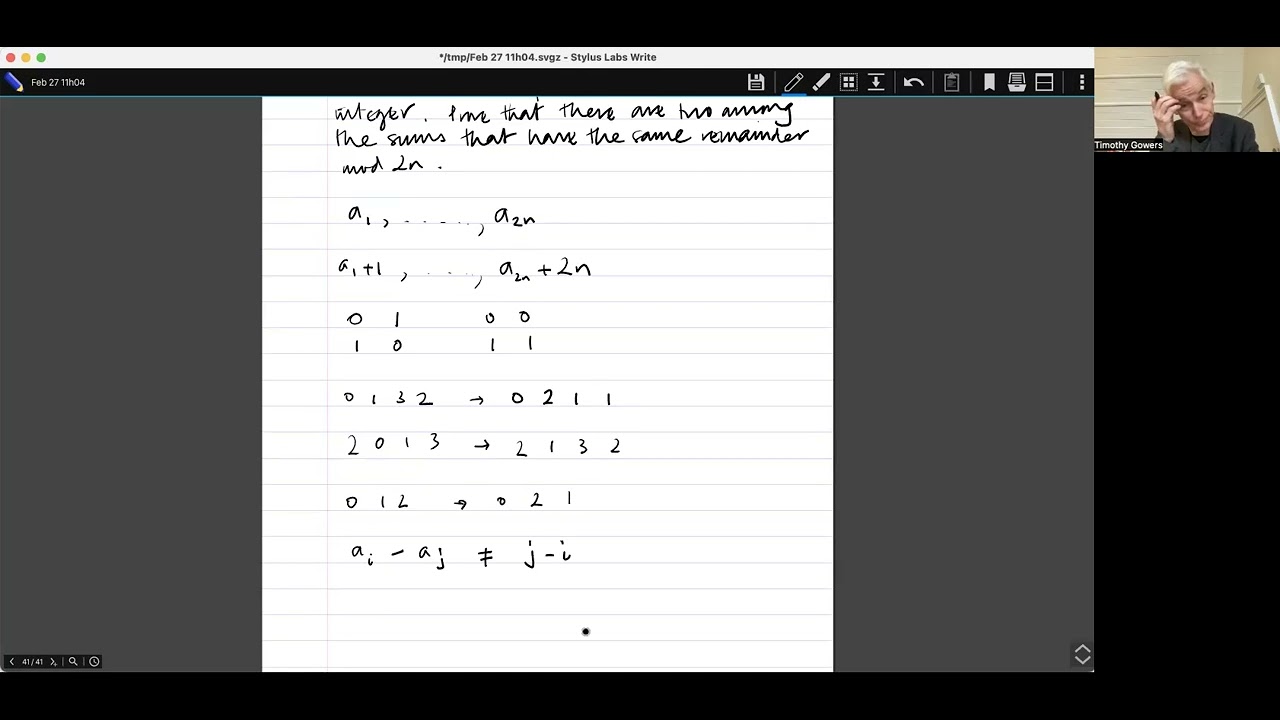 */tmp/Feb 27 11h04.svgz - Stylus Labs Write
Feb 27 11h04
integer. Prove that there are two among
the sums that have the same remainder
mod 2n.
a₁, ......, a₂ₙ
a₁+1, ......, a₂ₙ+2n
0 1 0 0
1 0 1 1
0 1 3 2 → 0 2 1 1
2 0 1 3 → 2 1 3 2
0 1 2 → 0 2 1
aᵢ - aⱼ ≠ j - i
41/41
Timothy Gowers